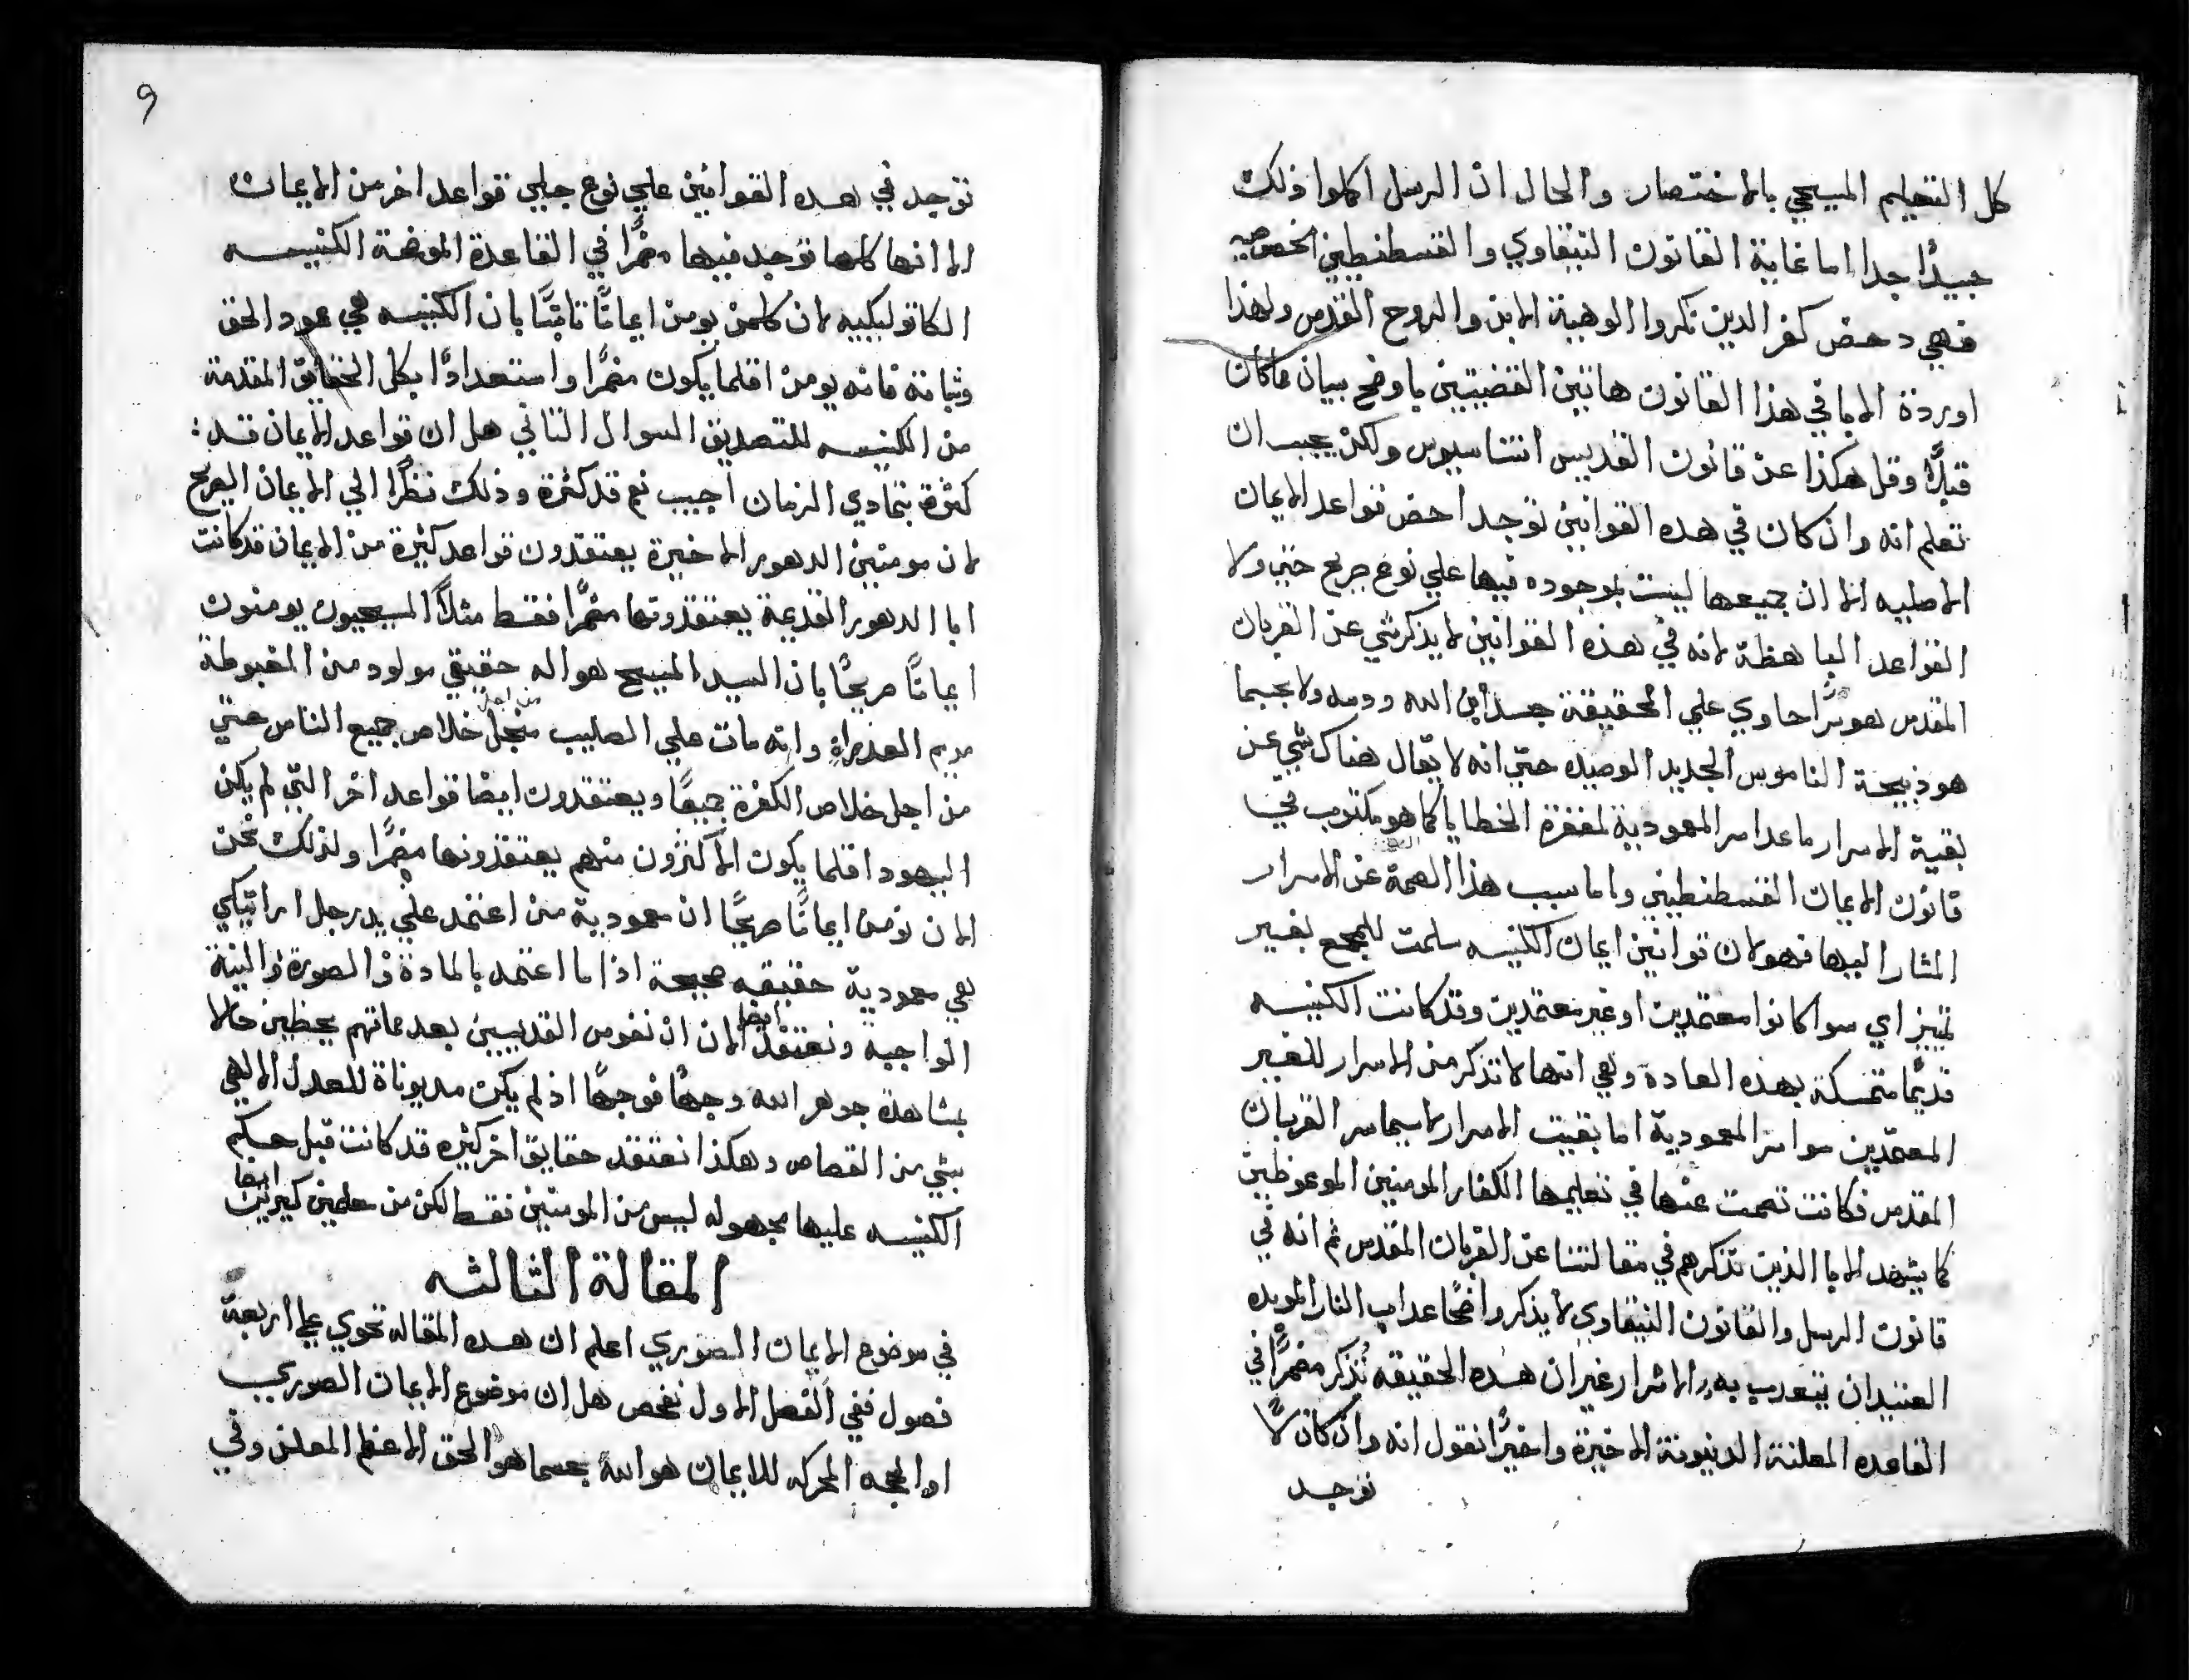 كل التعليم المسيحي بالاختصار والحال ان الرسل اكملوا ذلك
جيدًا جدا اما غاية القانون النيقاوي والقسطنطيني الخصوصيه
فهي دحض كفر الدين نكروا الوهية الابن والروح القدس ولهذا
اوردة الابا في هذا القانون هاتين القضيتين باوضح بيان ماكان
قبلًا وقل هكذا عن قانون القديس اتناسيوس ولكن يجب ان
تعلم انه وان كان في هده القوانين توجد احض قواعد الايمان
الاصليه الا ان جميعها ليست بموجوده فيها علي نوع صريح حتي ولا
القواعد الباهظة لانه في هذه القوانين لا يذكر شي عن القربان
المقدس هو سرًا حاوي علي الحقيقة جسد ابن الله ودمه ولا بجسبما
هو ذبيحة الناموس الجديد الوحيده حتي انه لا يقال هناك شي عن
بقية الاسرار ماعدا سر المعمودية لمغفرة الخطايا كما هو مكتوب في
قانون الايمان القسطنطيني واما سبب هذا الصمة عن الاسرار
المشار اليها فهو لان قوانين ايمان الكنيسه سلمت للجمع بغير
تمييز اي سوا كانوا معتمدين او غير معتمدين وقد كانت الكنيسه
قديمًا متمسكة بهذه العادة وهي انها لا تذكر من الاسرار للغير
المعتمدين سوا سر المعمودية اما بقيت الاسرار لاسيما سر القربان
المقدس فكانت تصمت عنها في تعليمها الكفار المومنين الموعوظين
كما يشهد الابا الذين تذكرهم في مقالتنا عن القربان المقدس ثم انه في
قانون الرسل والقانون النيقاوي لا يذكر واضحًا عداب النار الموبده
العتيدان يتعدب به الاشرار غير ان هده الحقيقه تُذكر مضمرًا في
القاعده المعلنة الدينونة الاخيرة واخيرًا نقول انه وان كان لا
توجد
9
توجد في هده القوانين علي نوع جلي قواعد اخر من الايمان
الا انها كلها توجد فيها مضمرًا في القاعدة الموضحة الكنيسه
الكاتوليكيه لان كلمن يومن ايمانًا ثابتًا بان الكنيسه هي عمود الحق
وثباته فانه يومن اقلما يكون مضمرًا واستعدادًا بكل الحقايق المقدمة
من الكنيسه للتصديق السوال التاني هل ان قواعد الايمان قد :
كثرة بتمادي الزمان اجيب نعم قد كثرة وذلك نظرًا الي الايمان الصريح
لان مومنين الدهور الاخيرة يعتقدون قواعد كثيرة من الايمان قد كانت
ابا الدهور القديمة يعتقدونها مضمرًا فقط مثلًا المسيحيون يومنون
ايمانًا صريحًا بان السيد المسيح هو اله حقيقي مولود من المغبوطة
مريم العذراء وانه مات علي الصليب من اجل خلاص جميع الناس حتي
من اجل خلاص الكفرة جميعًا ويعتقدون ايضًا قواعد اخر التي لم يكن
اليهود اقلما يكون الاكثرون منهم يعتقدونها مضمرًا ولذلك نحن
الان نومن ايمانًا صريحًا ان معمودية من اعتمد علي يد رجل اراتيكي
هي معمودية حقيقيه صحيحة اذا ما اعتمد بالمادة والصورة والنية
الواجبة ونعتقد ايضا الان ان نفوس القديسين بعد مماتهم يحظين حالا
بمشاهدة جوهر الله وجهًا فوجهًا اذ لم يكن مديوناة للعدل الالهي
بشي من القصاص وهكذا نعتقد حقايق اخر كثيره قد كانت قبل حكم
الكنيسه عليها مجهوله ليس من المومنين فقط لكن من معلمين كيرين ايضا
المقالة التالثه
في موضوع الايمان الصوري اعلم ان هده المقاله تحوي علي اربعة
فصول ففي الفصل الاول نفحص هل ان موضوع الايمان الصوري
او الجهه المحركه للايمان هو الله بحسما هو الحق الاعظم المعلن وفي